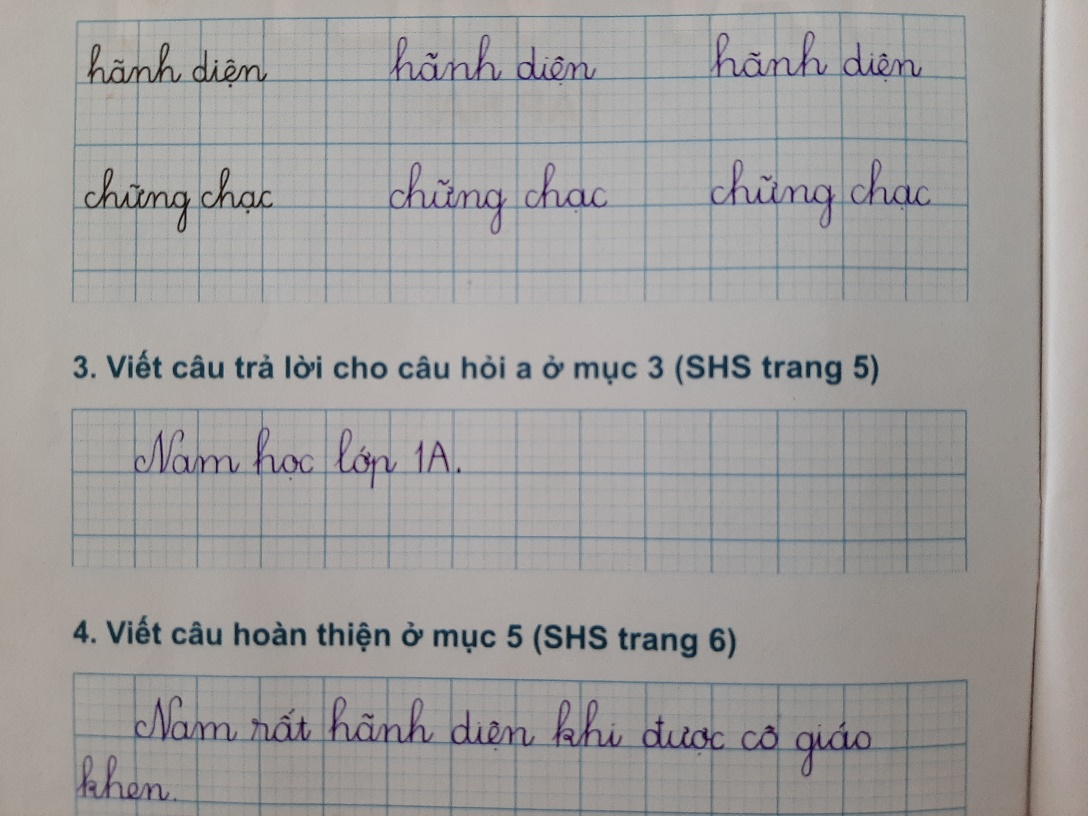 hãnh diện hãnh diện hãnh diện
chững chạc chững chạc chững chạc
3. Viết câu trả lời cho câu hỏi a ở mục 3 (SHS trang 5)
Nam học lớp 1A.
4. Viết câu hoàn thiện ở mục 5 (SHS trang 6)
Nam rất hãnh diện khi được cô giáo
khen.